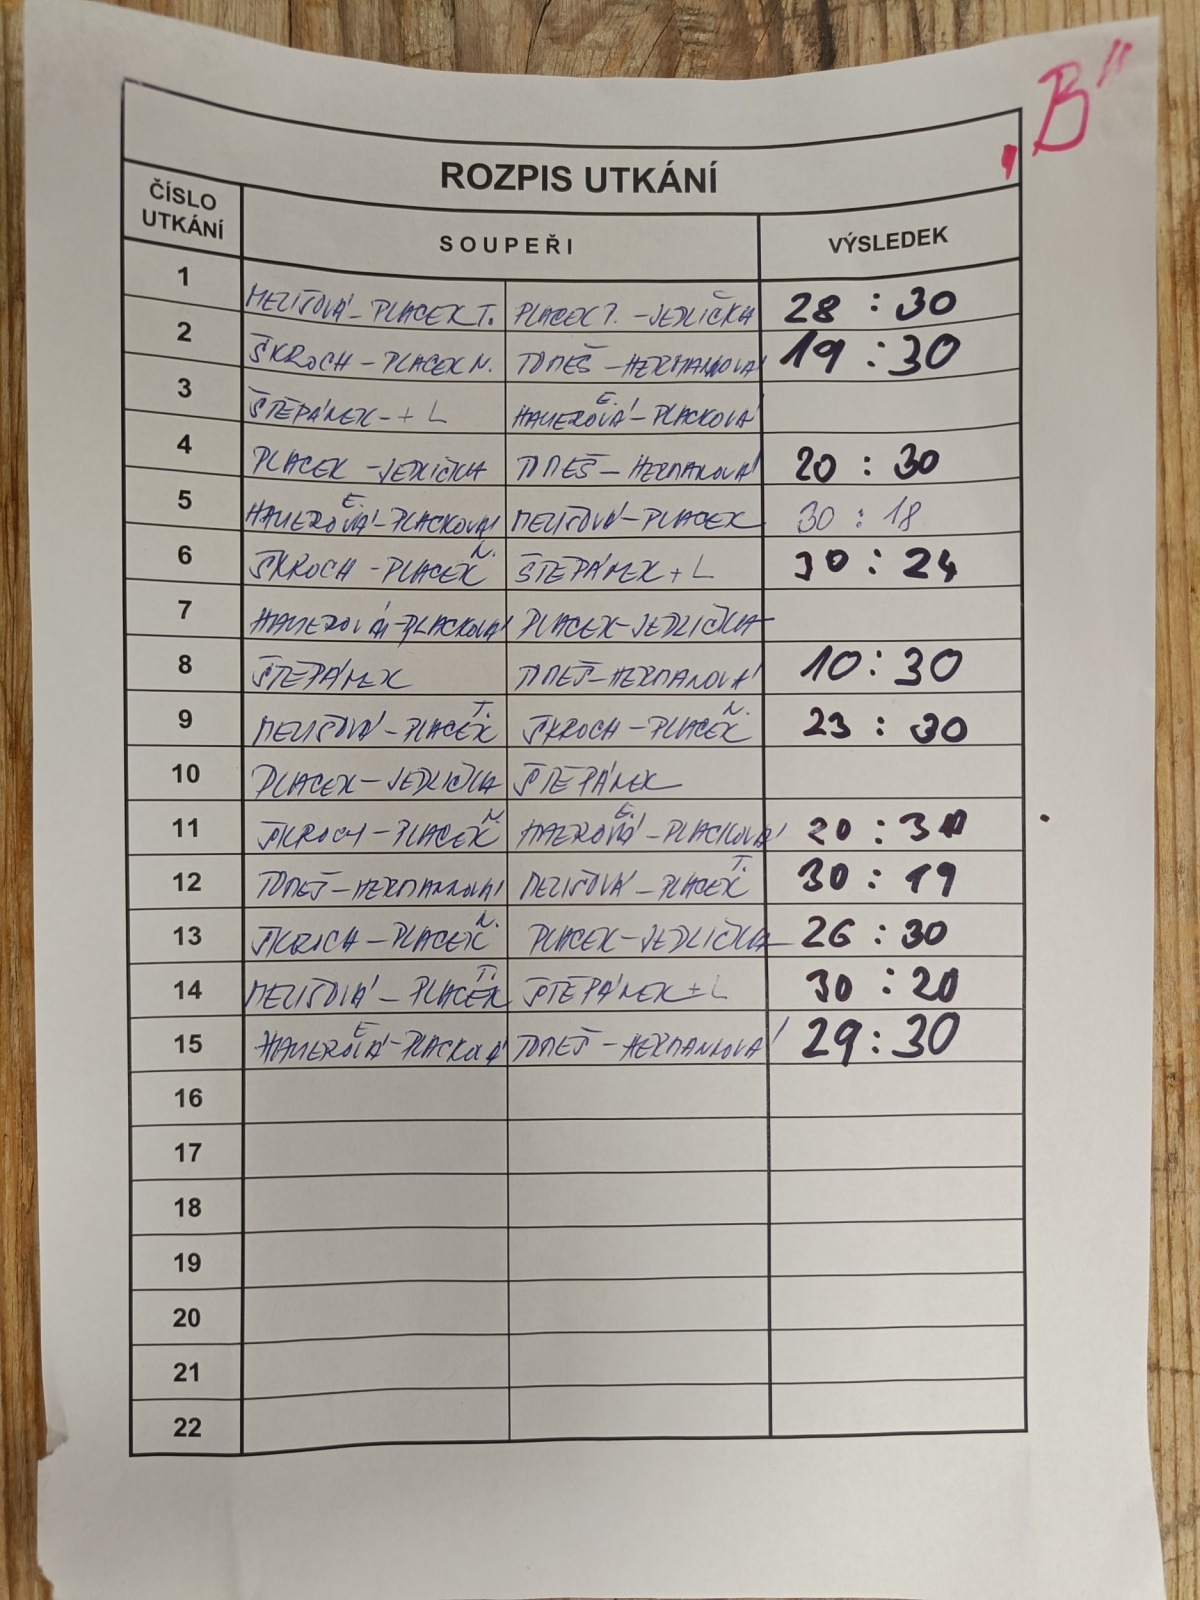 „B"
ROZPIS UTKÁNÍ
ČÍSLO UTKÁNÍ SOUPEŘI VÝSLEDEK
1 MELIŠOVÁ - PLACEK T. PLACEK P. - JEDLIČKA 28 : 30
2 ŠKROCH - PLACEK N. TOMEŠ - HERMANNOVÁ 19 : 30
3 ŠTĚPÁNEK - + L HAUEROVÁ E. - PLACKOVÁ
4 PLACEK - JEDLIČKA TOMEŠ - HERMANOVÁ 20 : 30
5 HAUEROVÁ E. - PLACKOVÁ MELIŠOVÁ - PLACEK 30 : 18
6 ŠKROCH - PLACEK N. ŠTĚPÁNEK + L 30 : 24
7 HAUEROVÁ - PLACKOVÁ PLACEK - JEDLIČKA
8 ŠTĚPÁNEK TOMEŠ - HERMANOVÁ 10 : 30
9 MELIŠOVÁ - PLACEK T. ŠKROCH - PLACEK N. 23 : 30
10 PLACEK - JEDLIČKA ŠTĚPÁNEK
11 ŠKROCH - PLACEK N. HAUEROVÁ E. - PLACKOVÁ 20 :
12 TOMEŠ - HERMANNOVÁ MELIŠOVÁ - PLACEK T. 30 : 19
13 ŠKROCH - PLACEK N. PLACEK - JEDLIČKA 26 : 30
14 MELIŠOVÁ - PLACEK T. ŠTĚPÁNEK + L 30 : 20
15 HAUEROVÁ E. - PLACKOVÁ TOMEŠ - HERMANNOVÁ 29 : 30
16
17
18
19
20
21
22